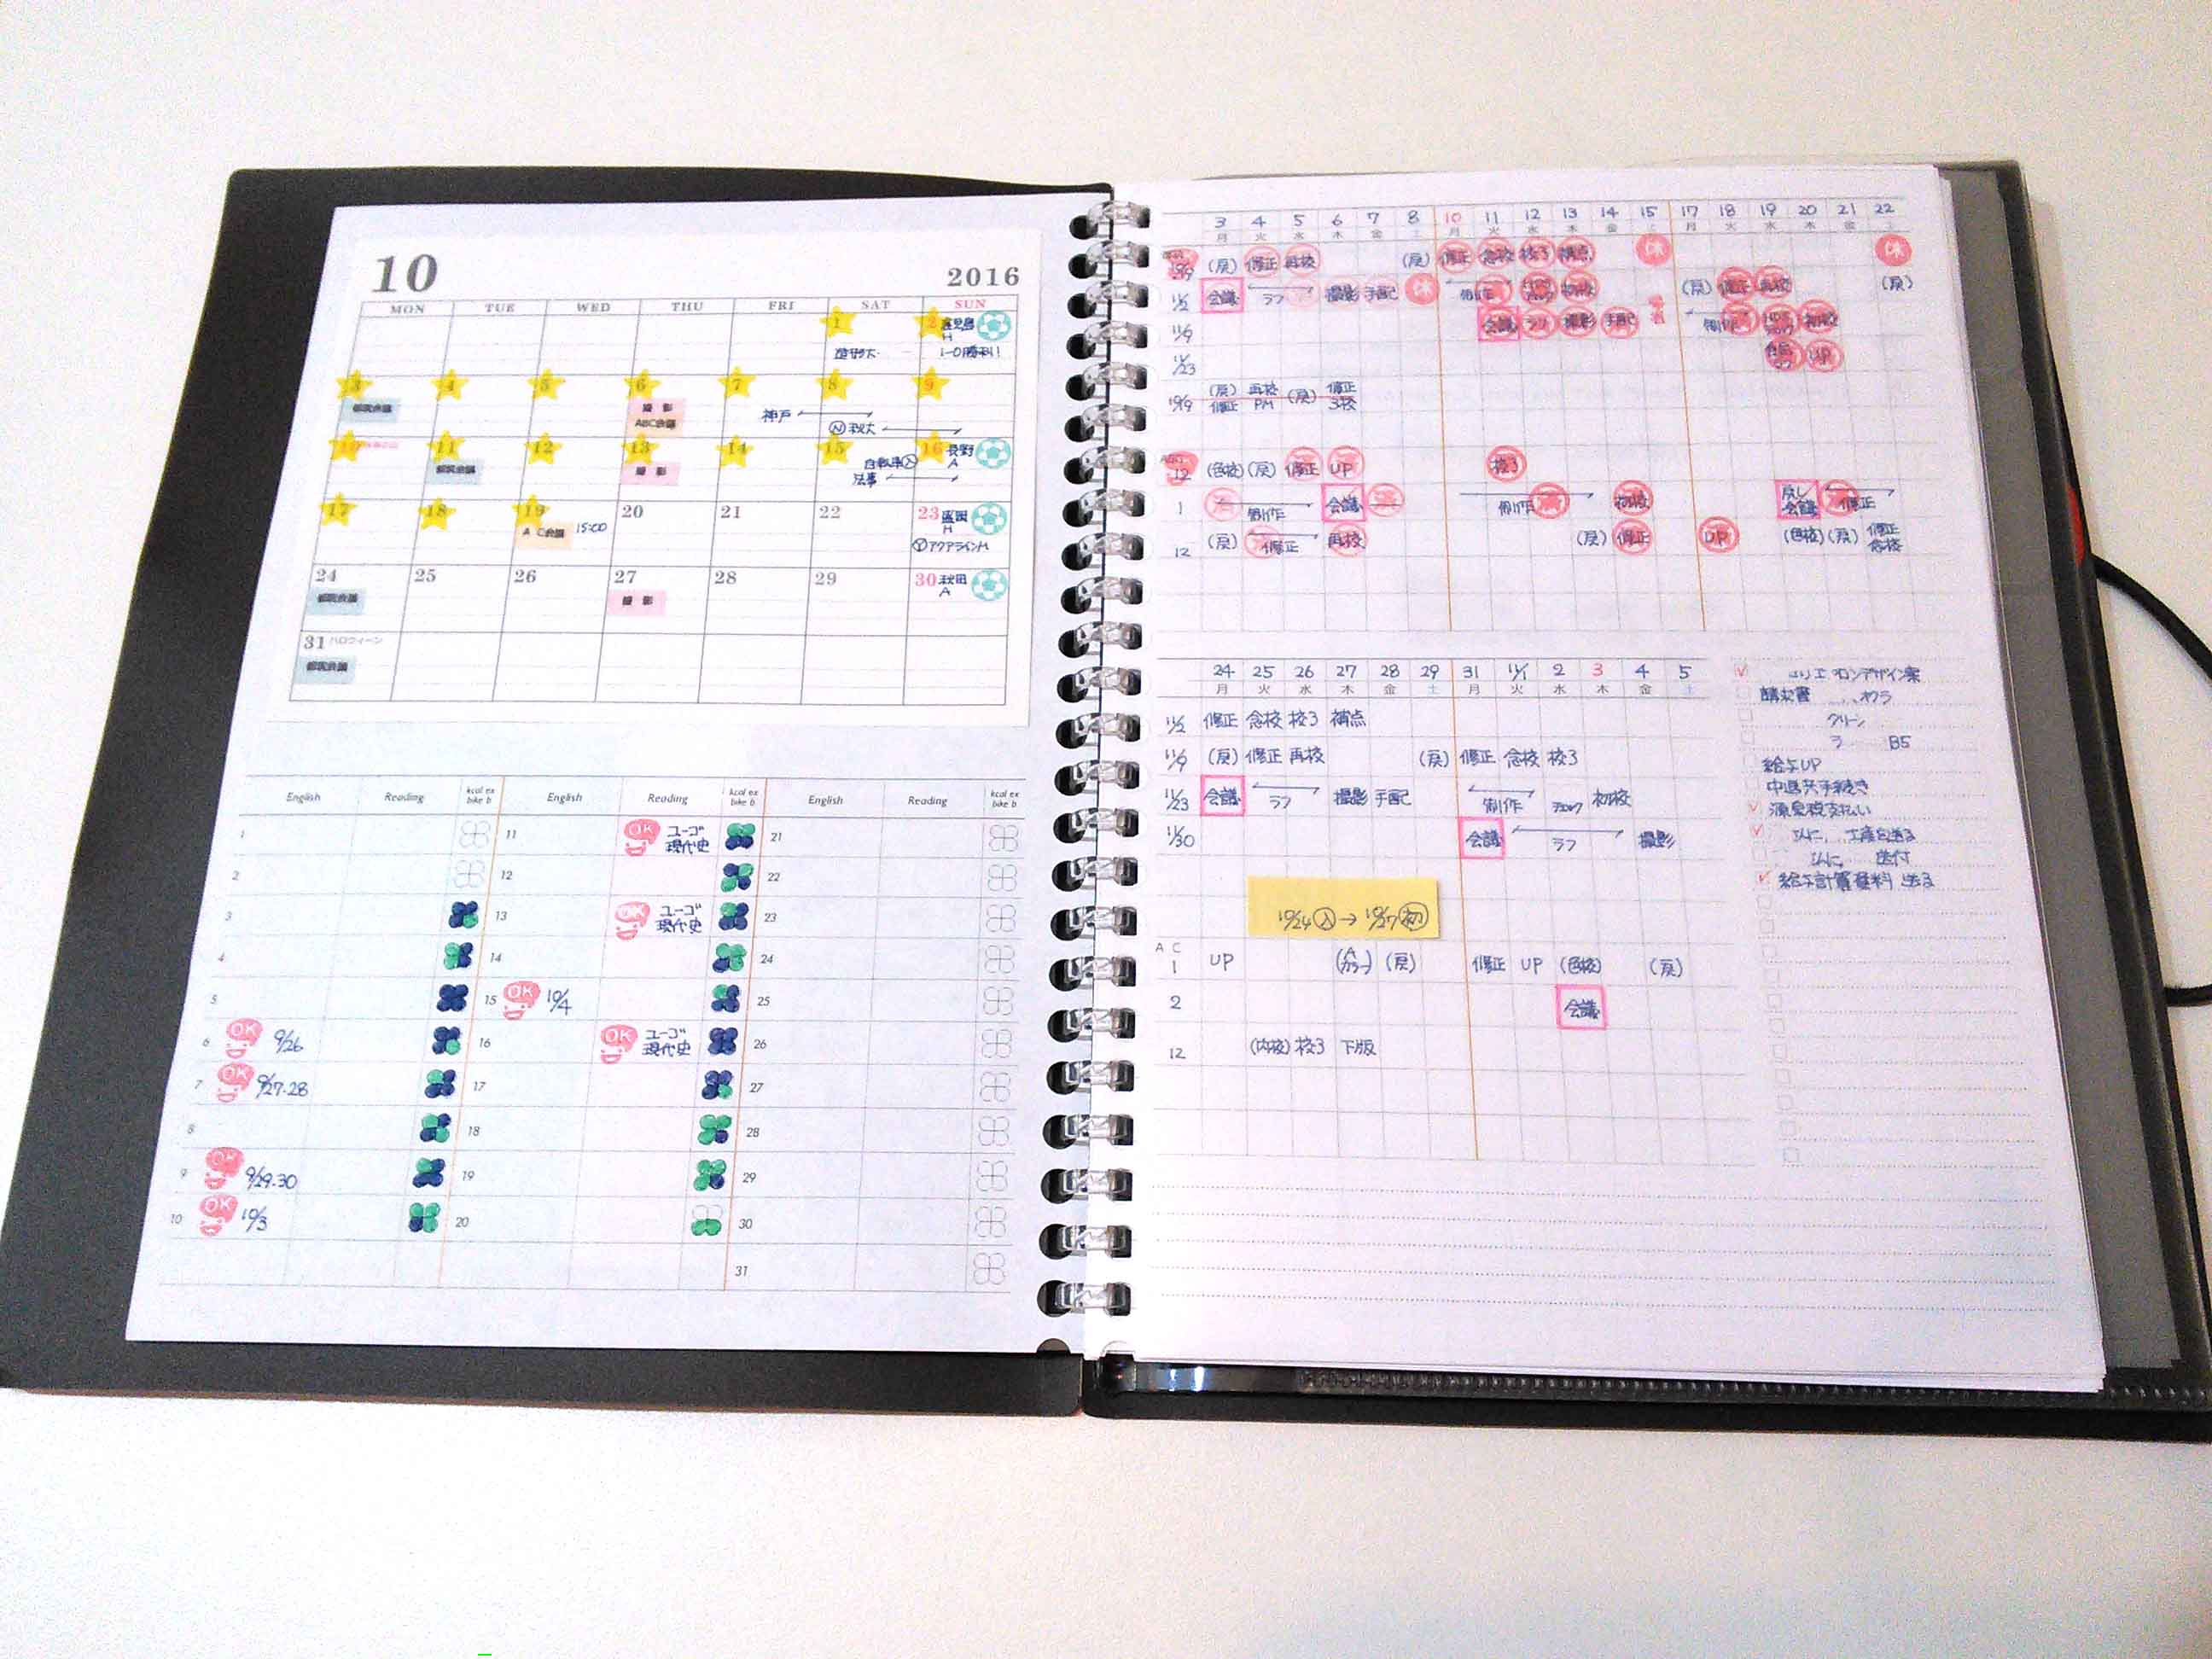 10
2016
MON TUE WED THU FRI SAT SUN
1 2 鹿児島 H
1-0勝利!
3 4 5 6 7 8 9
撮 影
ABC会議
神戸
11 12 13 14 15 16 長野 A
撮 影
法事
17 18 19 20 21 22 23 盛岡 H
A C会議 15:00
アクアラインM
24 25 26 27 28 29 30 秋田 A
撮 影
31 ハロウィーン
English Reading kcal ex bike b English Reading kcal ex bike b English Reading kcal ex bike b
1 11 OK ユーゴ 現代史 21
2 12 22
3 13 OK ユーゴ 現代史 23
4 14 24
5 15 OK 10/4 25
6 OK 9/26 16 OK ユーゴ 現代史 26
7 OK 9/27.28 17 27
8 18 28
9 OK 9/29.30 19 29
10 OK 10/3 20 30
31
3 4 5 6 7 8 10 11 12 13 14 15 17 18 19 20 21 22
月 火 水 木 金 土 月 火 水 木 金 土 月 火 水 木 金
(戻) 修正 再校 (戻) 修正 念校 校3 補点 休 休
11/2 会議 ラフ 撮影 手配 休 制作 初校 (戻) 修正 再校 (戻)
11/9 会議 ラフ 撮影 手配 制作 初校
11/23 UP
10/19 (戻) 再校 (戻) 修正
修正 PM 3校
12 (色校) (戻) 修正 UP 校3
1 制作 会議 制作 初校 戻し 会議 修正
12 (戻) 修正 再校 (戻) 修正 UP (色校) (戻) 修正 念校
24 25 26 27 28 29 31 11/1 2 3 4 5
月 火 水 木 金 土 月 火 水 木 金 土
11/2 修正 念校 校3 補点
11/9 (戻) 修正 再校 (戻) 修正 念校 校3
11/23 会議 ラフ 撮影 手配 制作 初校
11/30 会議 ラフ 撮影
10/24(入)→10/27(初)
A C
1 UP (カラー) (戻) 修正 UP (色校) (戻)
2 会議
12 (内校) 校3 下版
請求書
グリーン
B5
給与UP
中退共手続き
源泉税支払い
送付
給与計算資料 送る